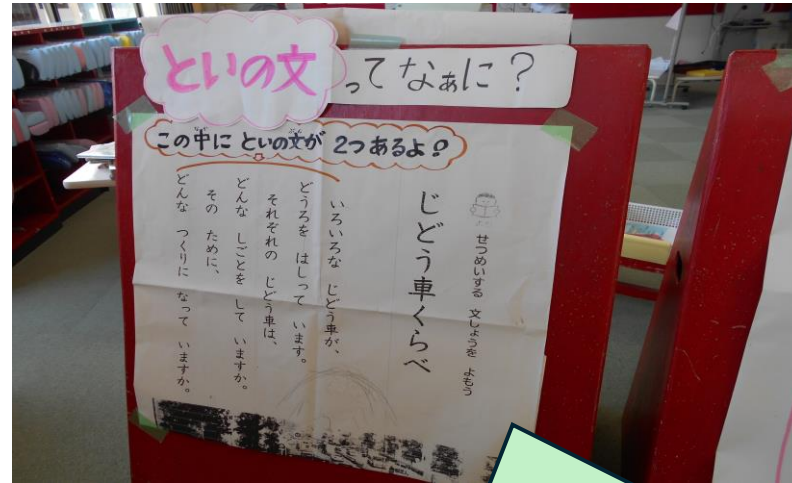 といの文ってなぁに？
この中に といの文が 2つあるよ！
せつめいする 文しょうを よもう
じどう車くらべ
いろいろな じどう車が、
どうろを はしって います。
それぞれの じどう車は、
どんな しごとを して いますか。
その ために、
どんな つくりに なって いますか。